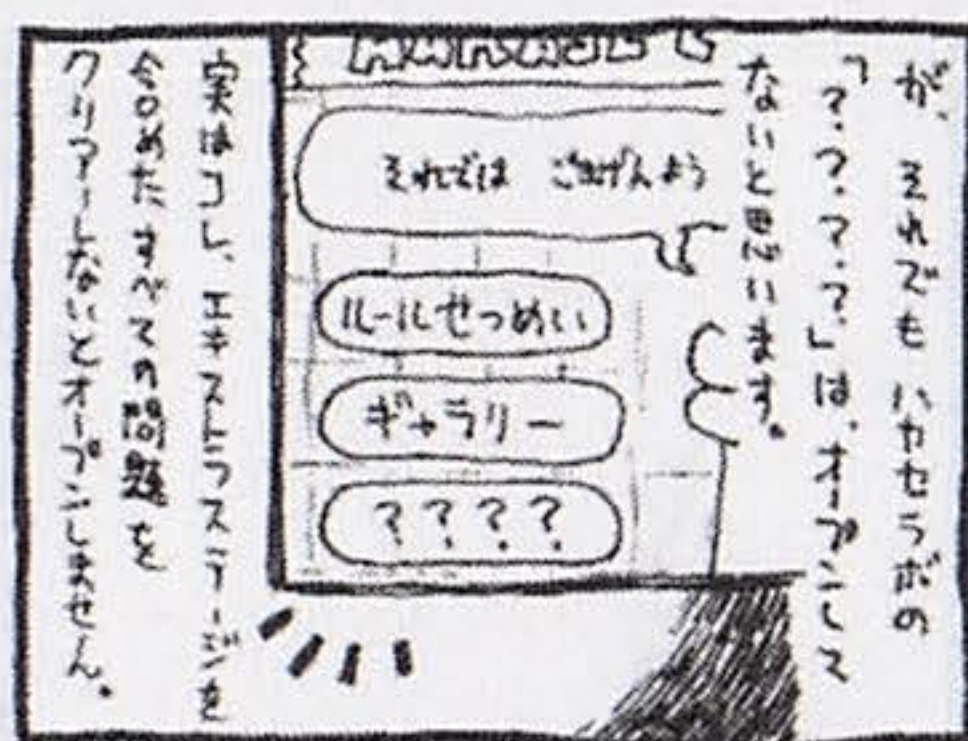 が、それでもハヤセラボの
「？？？？」は、オープンして
ないと思います。
それでは ごきげんよう
ルールせつめい
ギャラリー
？？？？
実はコレ、エキストラステージを
含めたすべての問題を
クリアーしないとオープンしません。